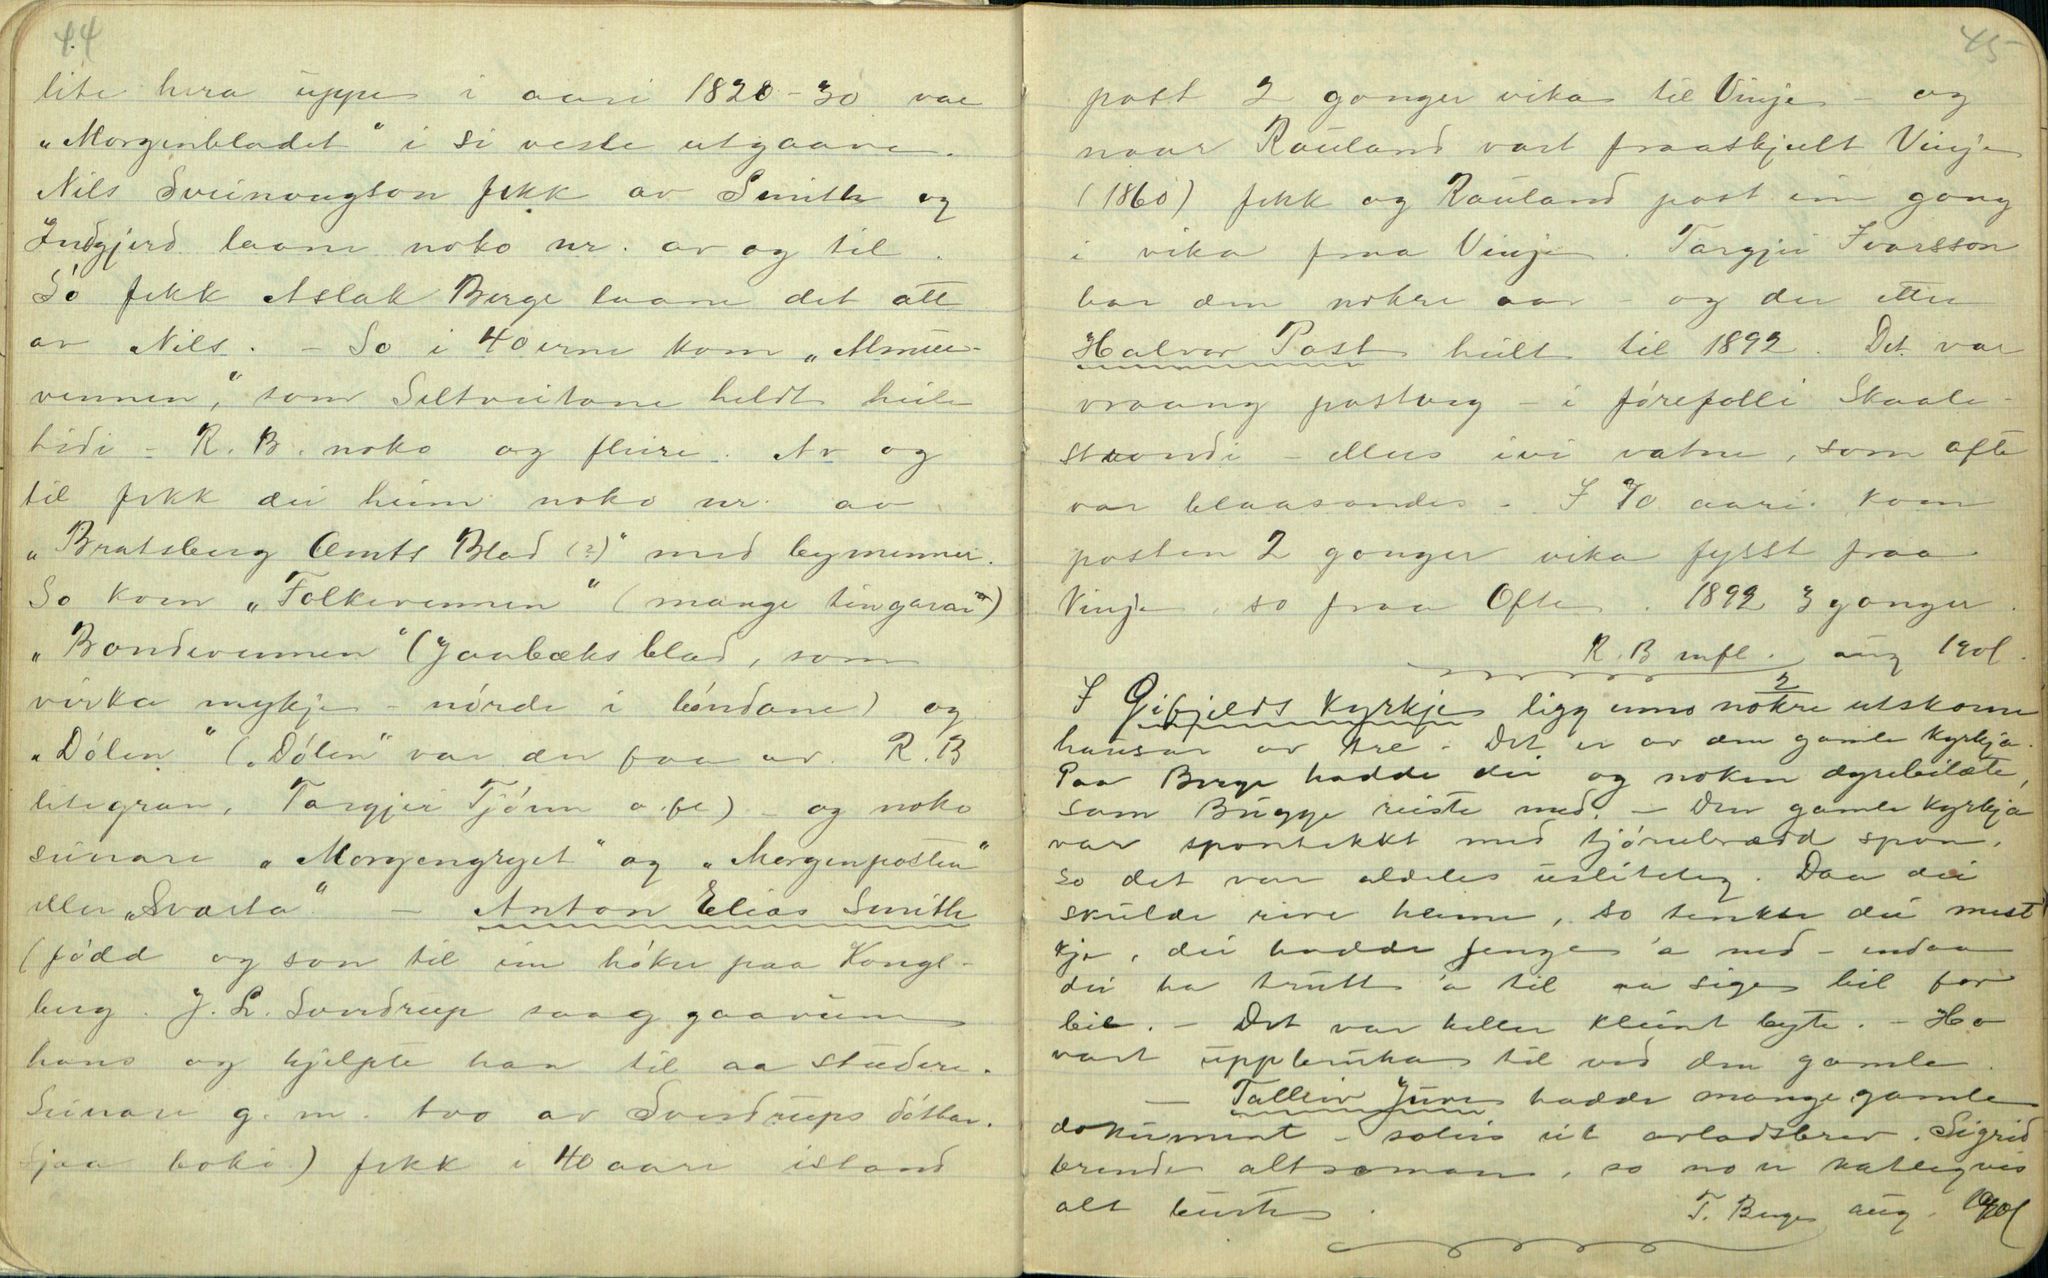 44
lite hera uppe i aari 1820-30 var
„Morgenbladet" i si vesle utgaave.
Nils Sveinougson fekk av Smith og
Indgjerd laane noko nr. av og til.
Só fekk Aslak Berge laane det att
av Nils. - So i 40 urne kom „Almue-
vennen", som Seltveitane heldt heile
tidi - R. B. noko og fleire. Av og
til fekk dei heim noko nr. av
„Bratsberg Amts Blad (?)" med bymenner.
So kom „Folkevennen" (mange tingarar)
„Bondevennen" (Jaabæks blad, som
virka mykje - nórde i bóndane) og
„Dólen" („Dólen" var der faa av. R.B
litegran, Targjei Tjónn o.fl) - og noko
seinare „Morgengryet" og „Morgenposten"
eller „Svarta" - Anton Elias Smith
(fódd og son til ein hóker paa Kongs-
berg. J. L. Sverdrup saag gaavune
hans og hjelpte han til aa studere.
Seinare g. m. tvo av Sverdrups dóttar.
Sjaa boki) fekk i 40 aari istand
45
post 2 gonger vika til Vinje - og
naar Rauland vart fraaskjelt Vinje
(1860) fekk og Rauland post ein gong
i vika fraa Vinje. Targjei Ivarsson
bar den nokre aar - og der etter
Halvor Post heilt til 1892. Det var
vraang postveg - i fórefalli Skaale-
strondi - elles ivi vatne, som ofte
var blaasandes - I 70 aari kom
posten 2 gonger vika fysst fraa
Vinje, so fraa Ofte. 1892 3 gonger.
R. B mfl. aug 1901.
I Gibjelds kyrkje ligg enno nokre 2 utskorne
hausar av tre. Det er av den gamle kyrkja.
Paa Berge hadde dei og noken dyrebilæte,
som Bugge reiste med. - Den gamle kyrkja
var spontekkt med tjórebrædd spon.
so det var aldeles usliteleg. Daa dei
skulde rive henne, so tenkte dei mest
kje, dei hadde fenge 'a ned - endaa
dei ha trutt 'a til aa sige bil for
bil. - Det var heller kleint byte. - Ho
vart uppbruka til ved den gamle.
- Talleiv Juve hadde mange gamle
dokument - soleis eit avladsbrev. Sigrid
brende altsaman, so no er katlegvis
alt burte. T. Berge aug. 1901